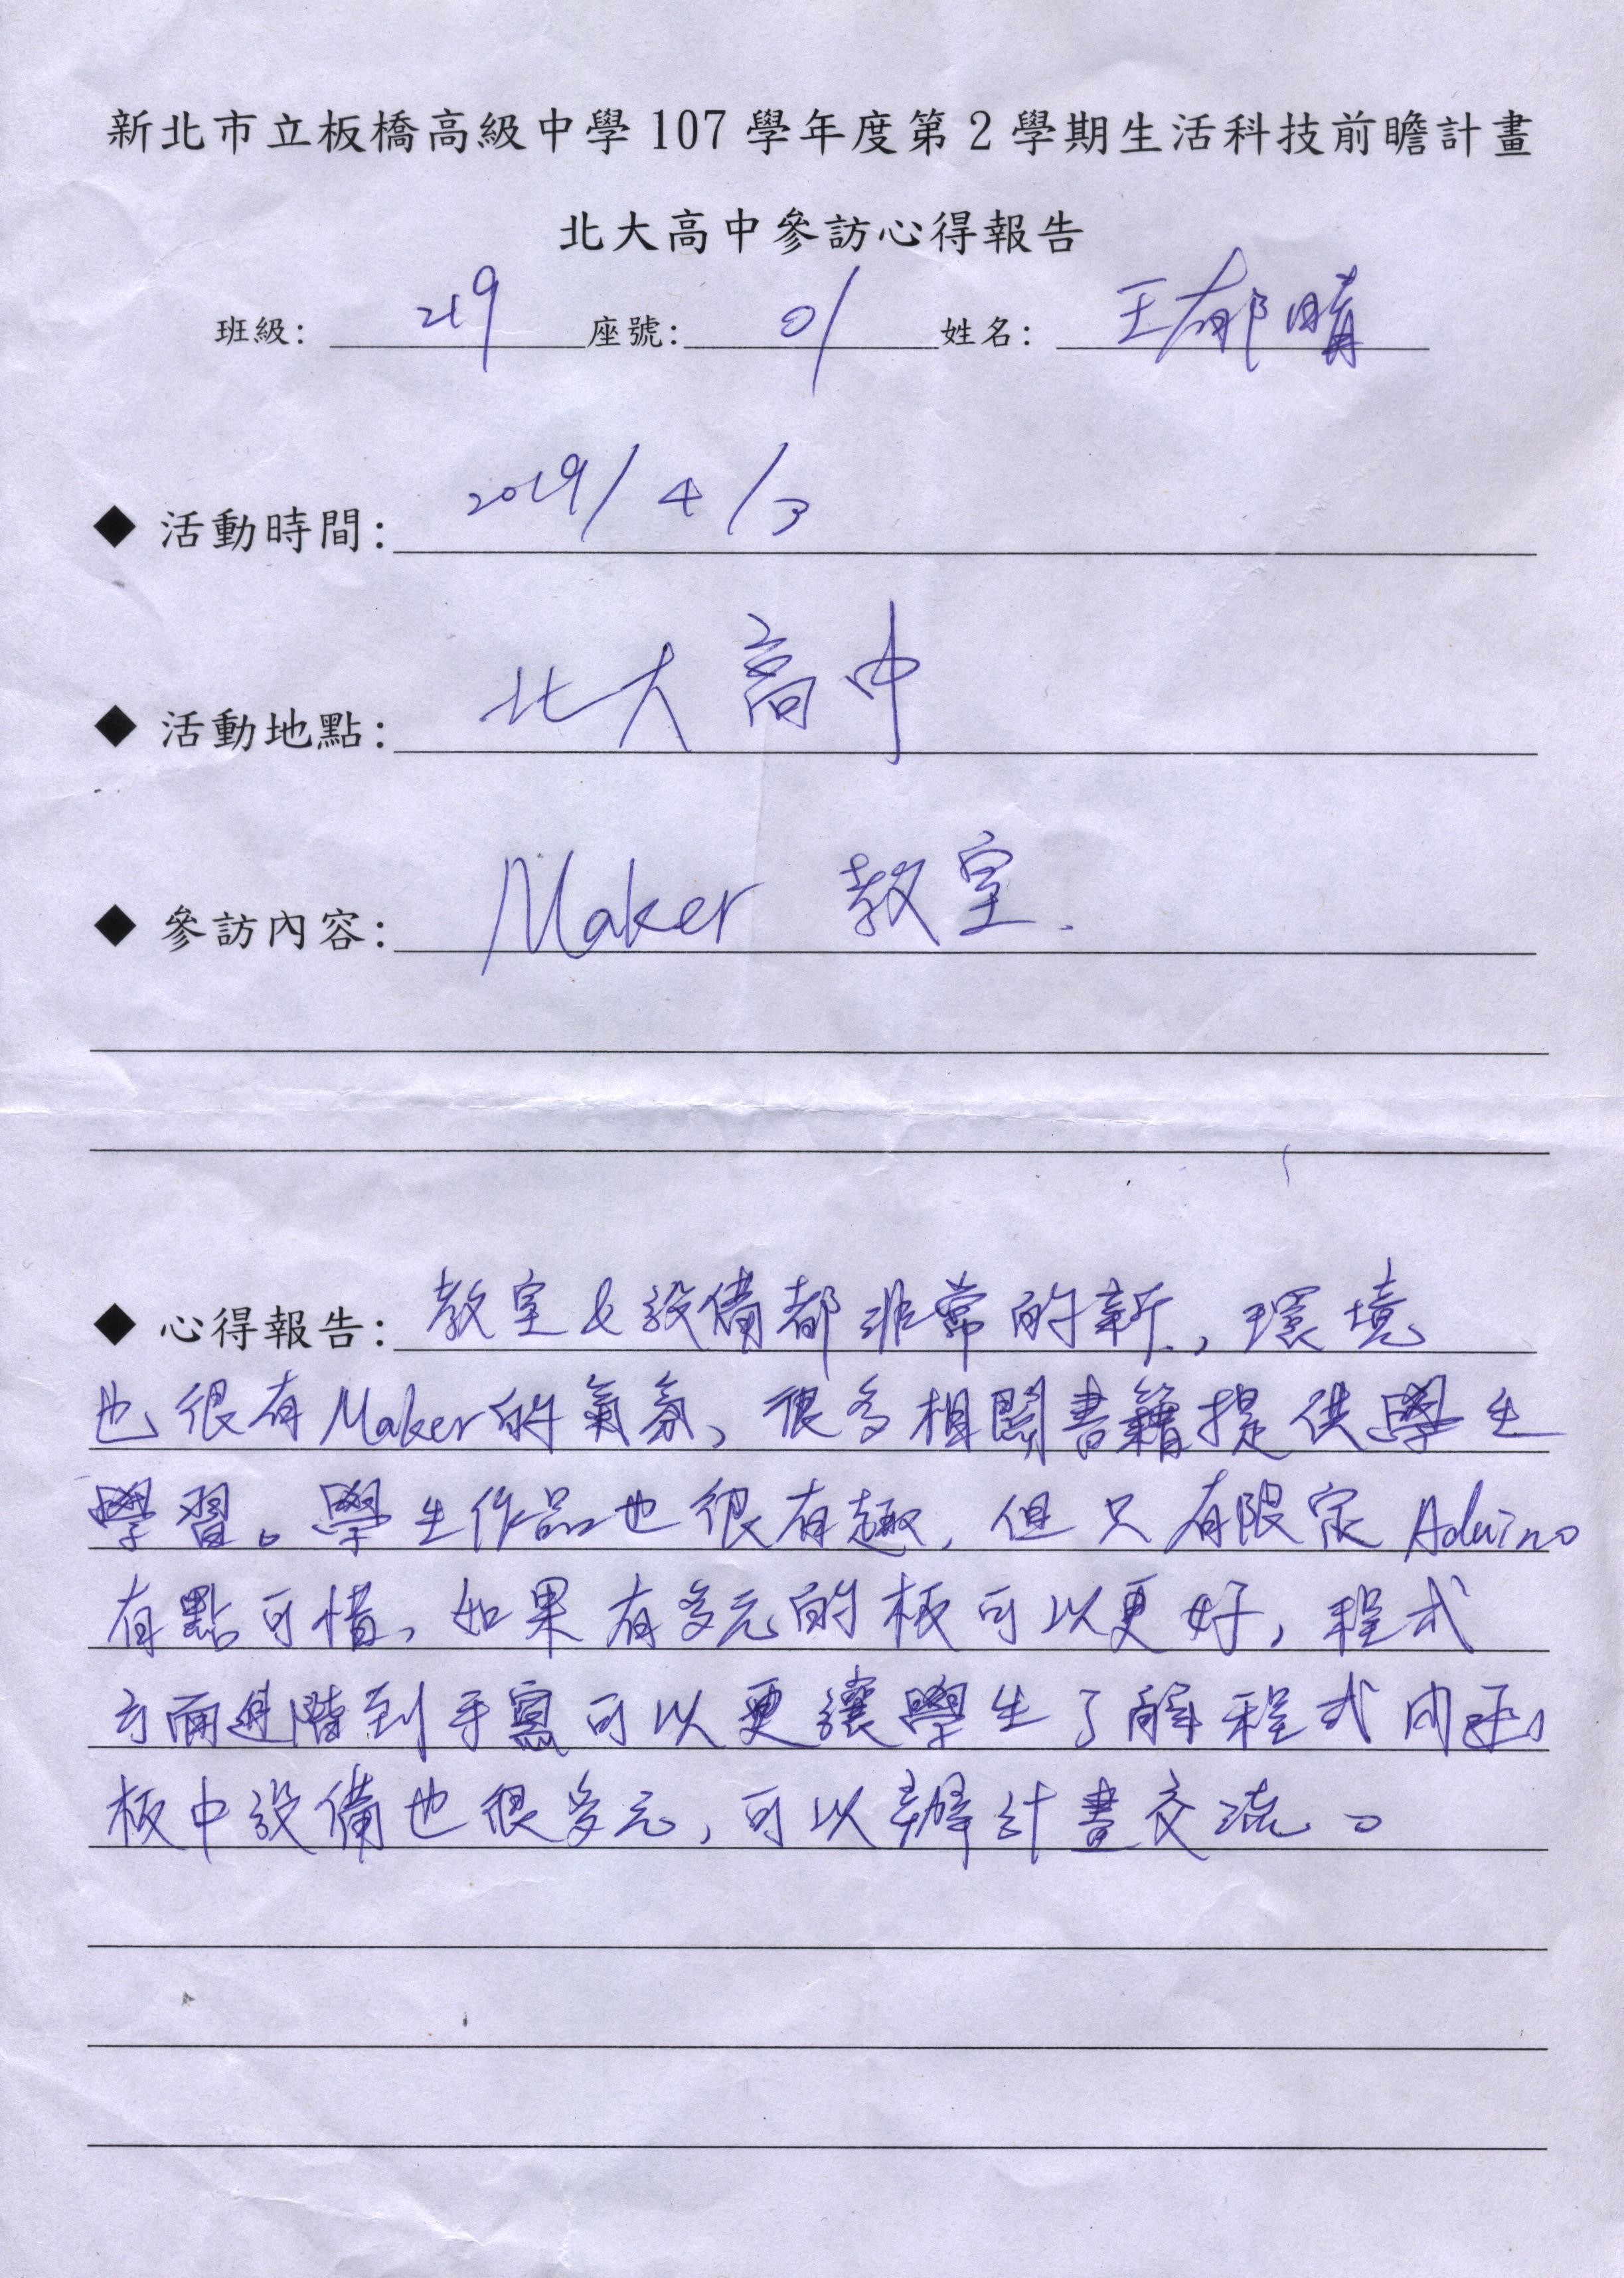 新北市立板橋高級中學 107 學年度第 2 學期生活科技前瞻計畫
北大高中參訪心得報告
班級: 219 座號: 01 姓名: 王郁晴
◆ 活動時間: 2019/4/3
◆ 活動地點: 北大高中
◆ 參訪內容: Maker 教室.
◆ 心得報告: 教室&設備都非常的新,環境
也很有Maker的氣氛、很多相關書籍提供學生
學習。學生作品也很有趣,但只有限定 Aduino
有點可惜,如果有多元的板可以更好,程式
方面進階到手寫可以更讓學生了解程式
板中設備也很多元,可以辦計畫交流。